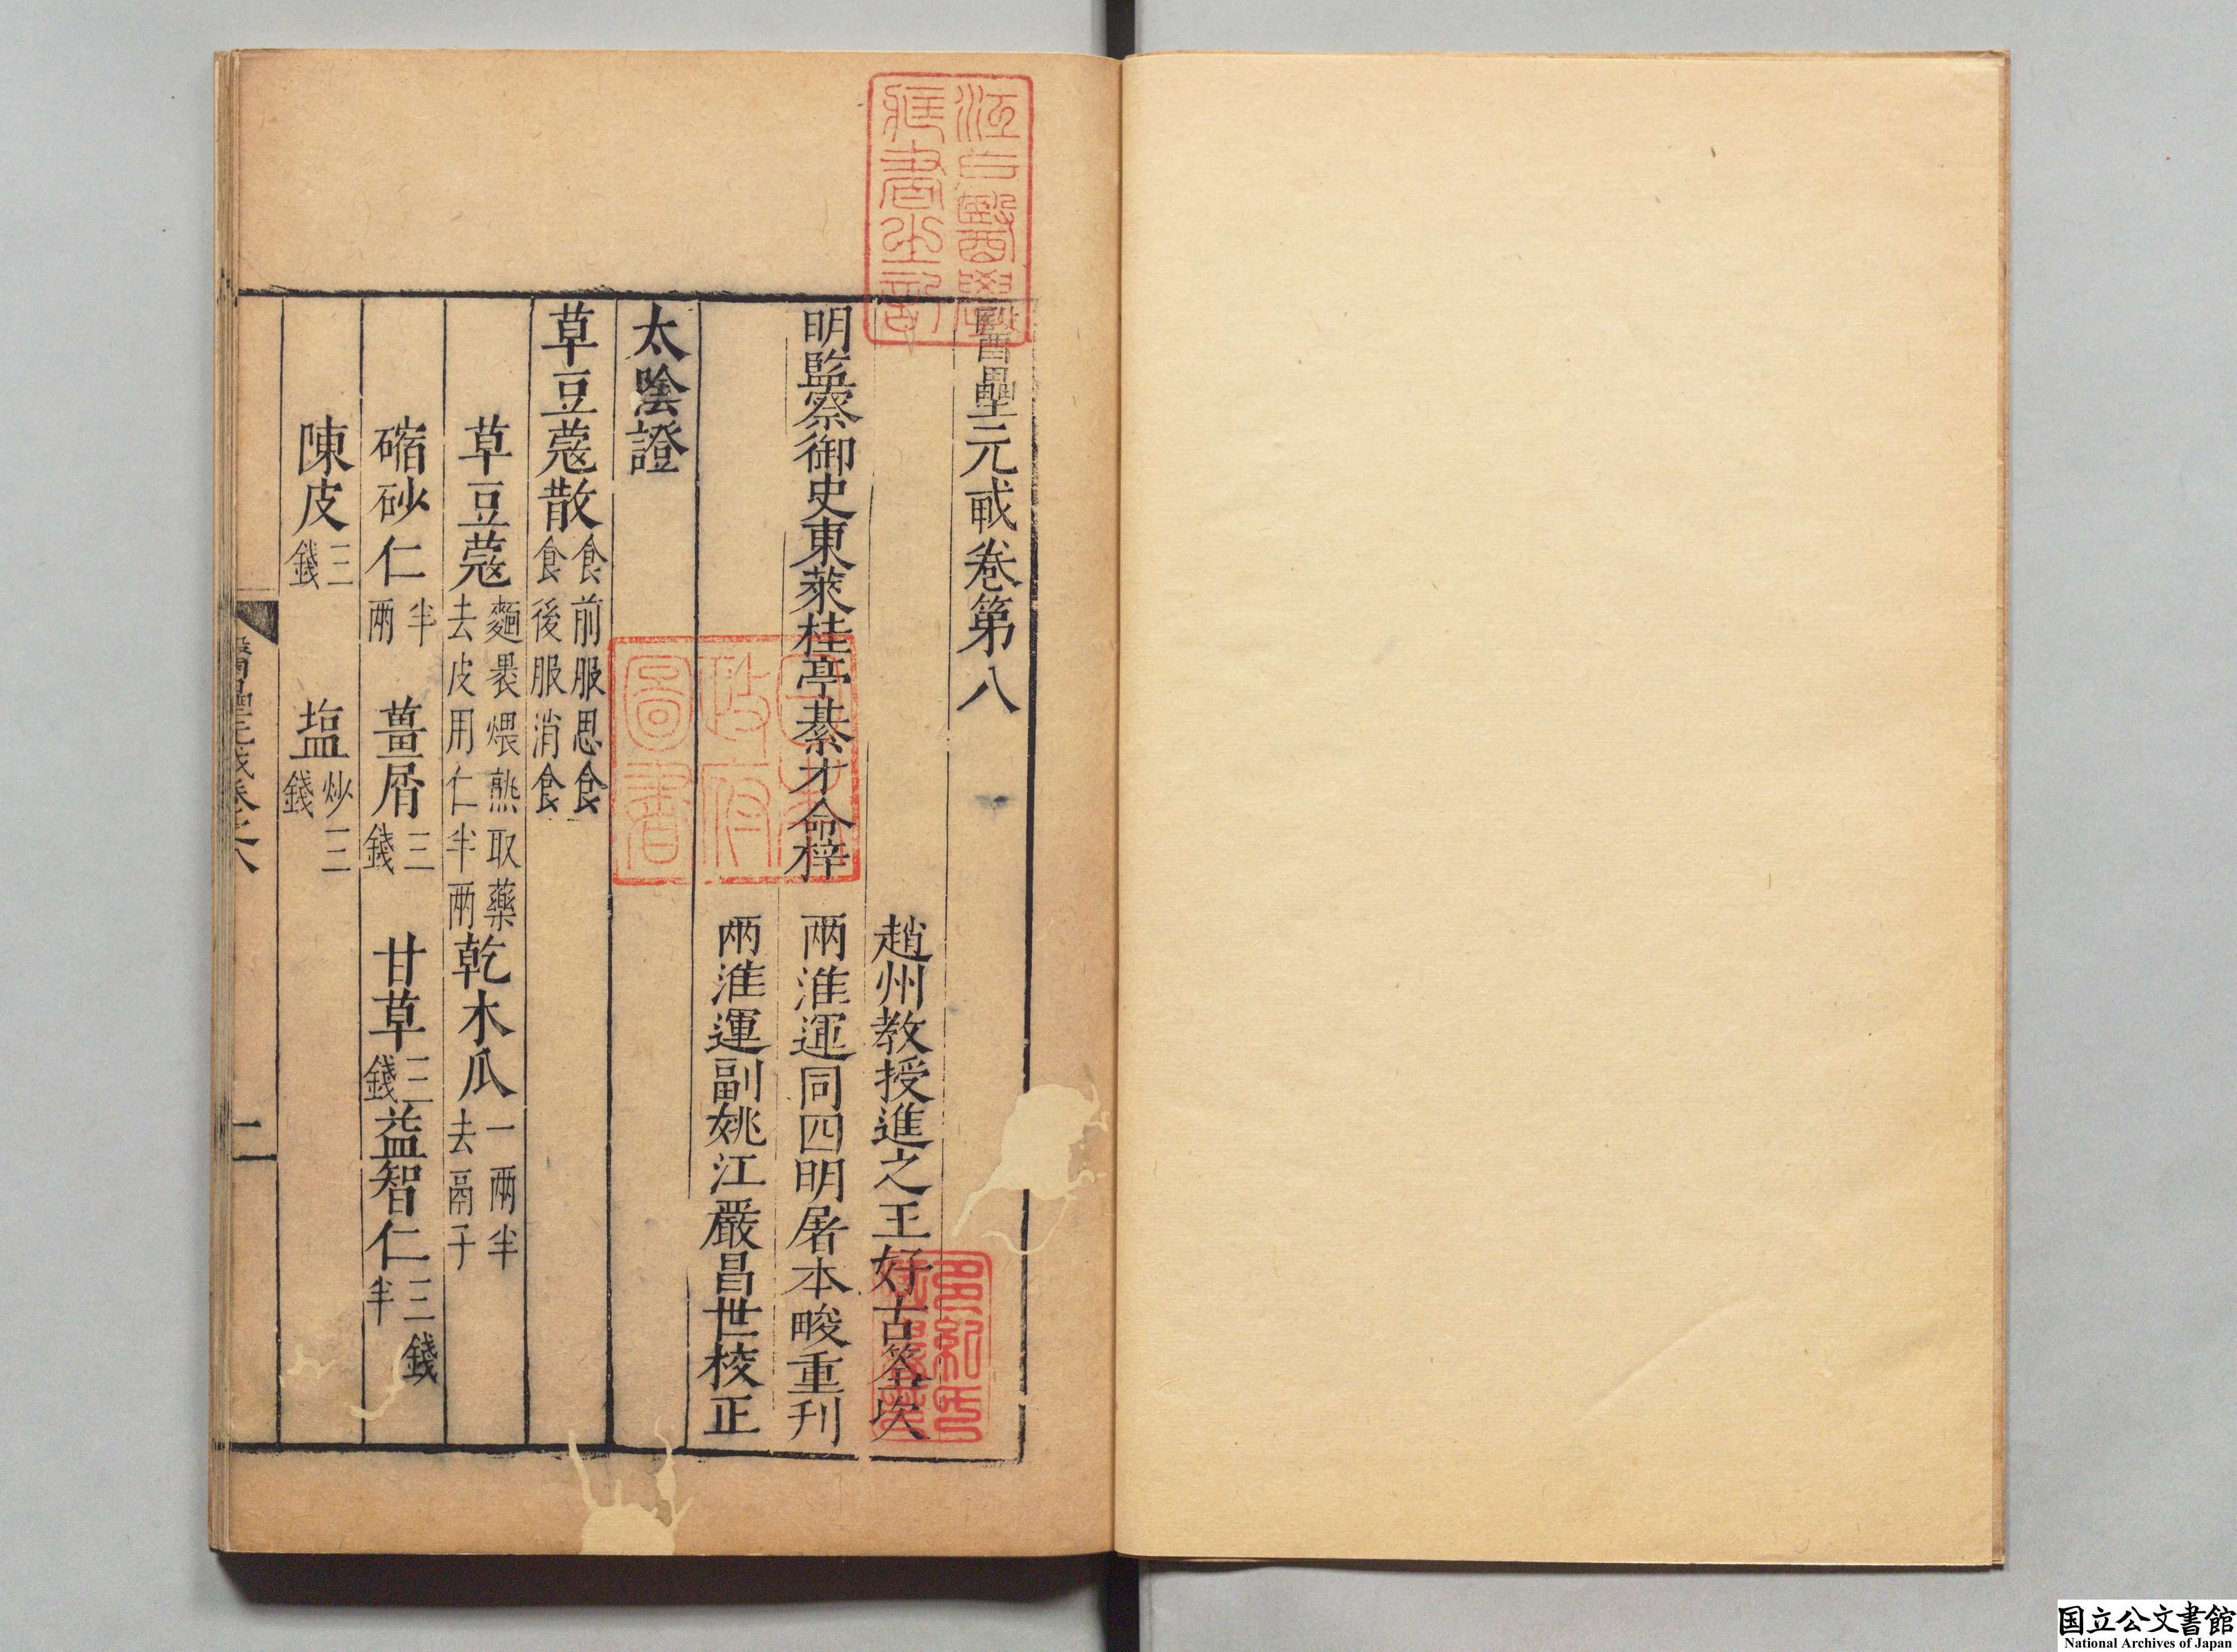 醫壘元戎卷第八
趙州教授進之王好古箸次
明監察御史東萊桂亭綦才命梓
兩淮運同四明屠本畯重刊
兩淮運副姚江嚴昌世校正
太陰證
草豆蔻散 食前服思食 食後服消食
草豆蔻 麵裹煨熟取藥 去皮用仁半兩 乾木瓜 一兩半 去鬲子
縮砂仁 半兩 薑屑 三錢 甘草 三錢 益智仁 三錢半
陳皮 三錢 塩 炒三錢
醫壘元戎卷之八
一
江戶醫學藏書之記
日本政府圖書
多紀氏藏書印
国立公文書館
National Archives of Japan